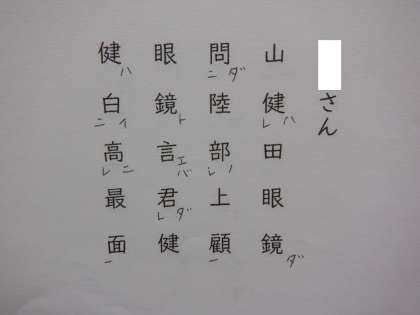 さん
山健ハレ田眼鏡ダ
問ダニ陸部ノレ上顧一
眼鏡ト言エバ君ダレ健
健ハ白イニ高ニレ最面一